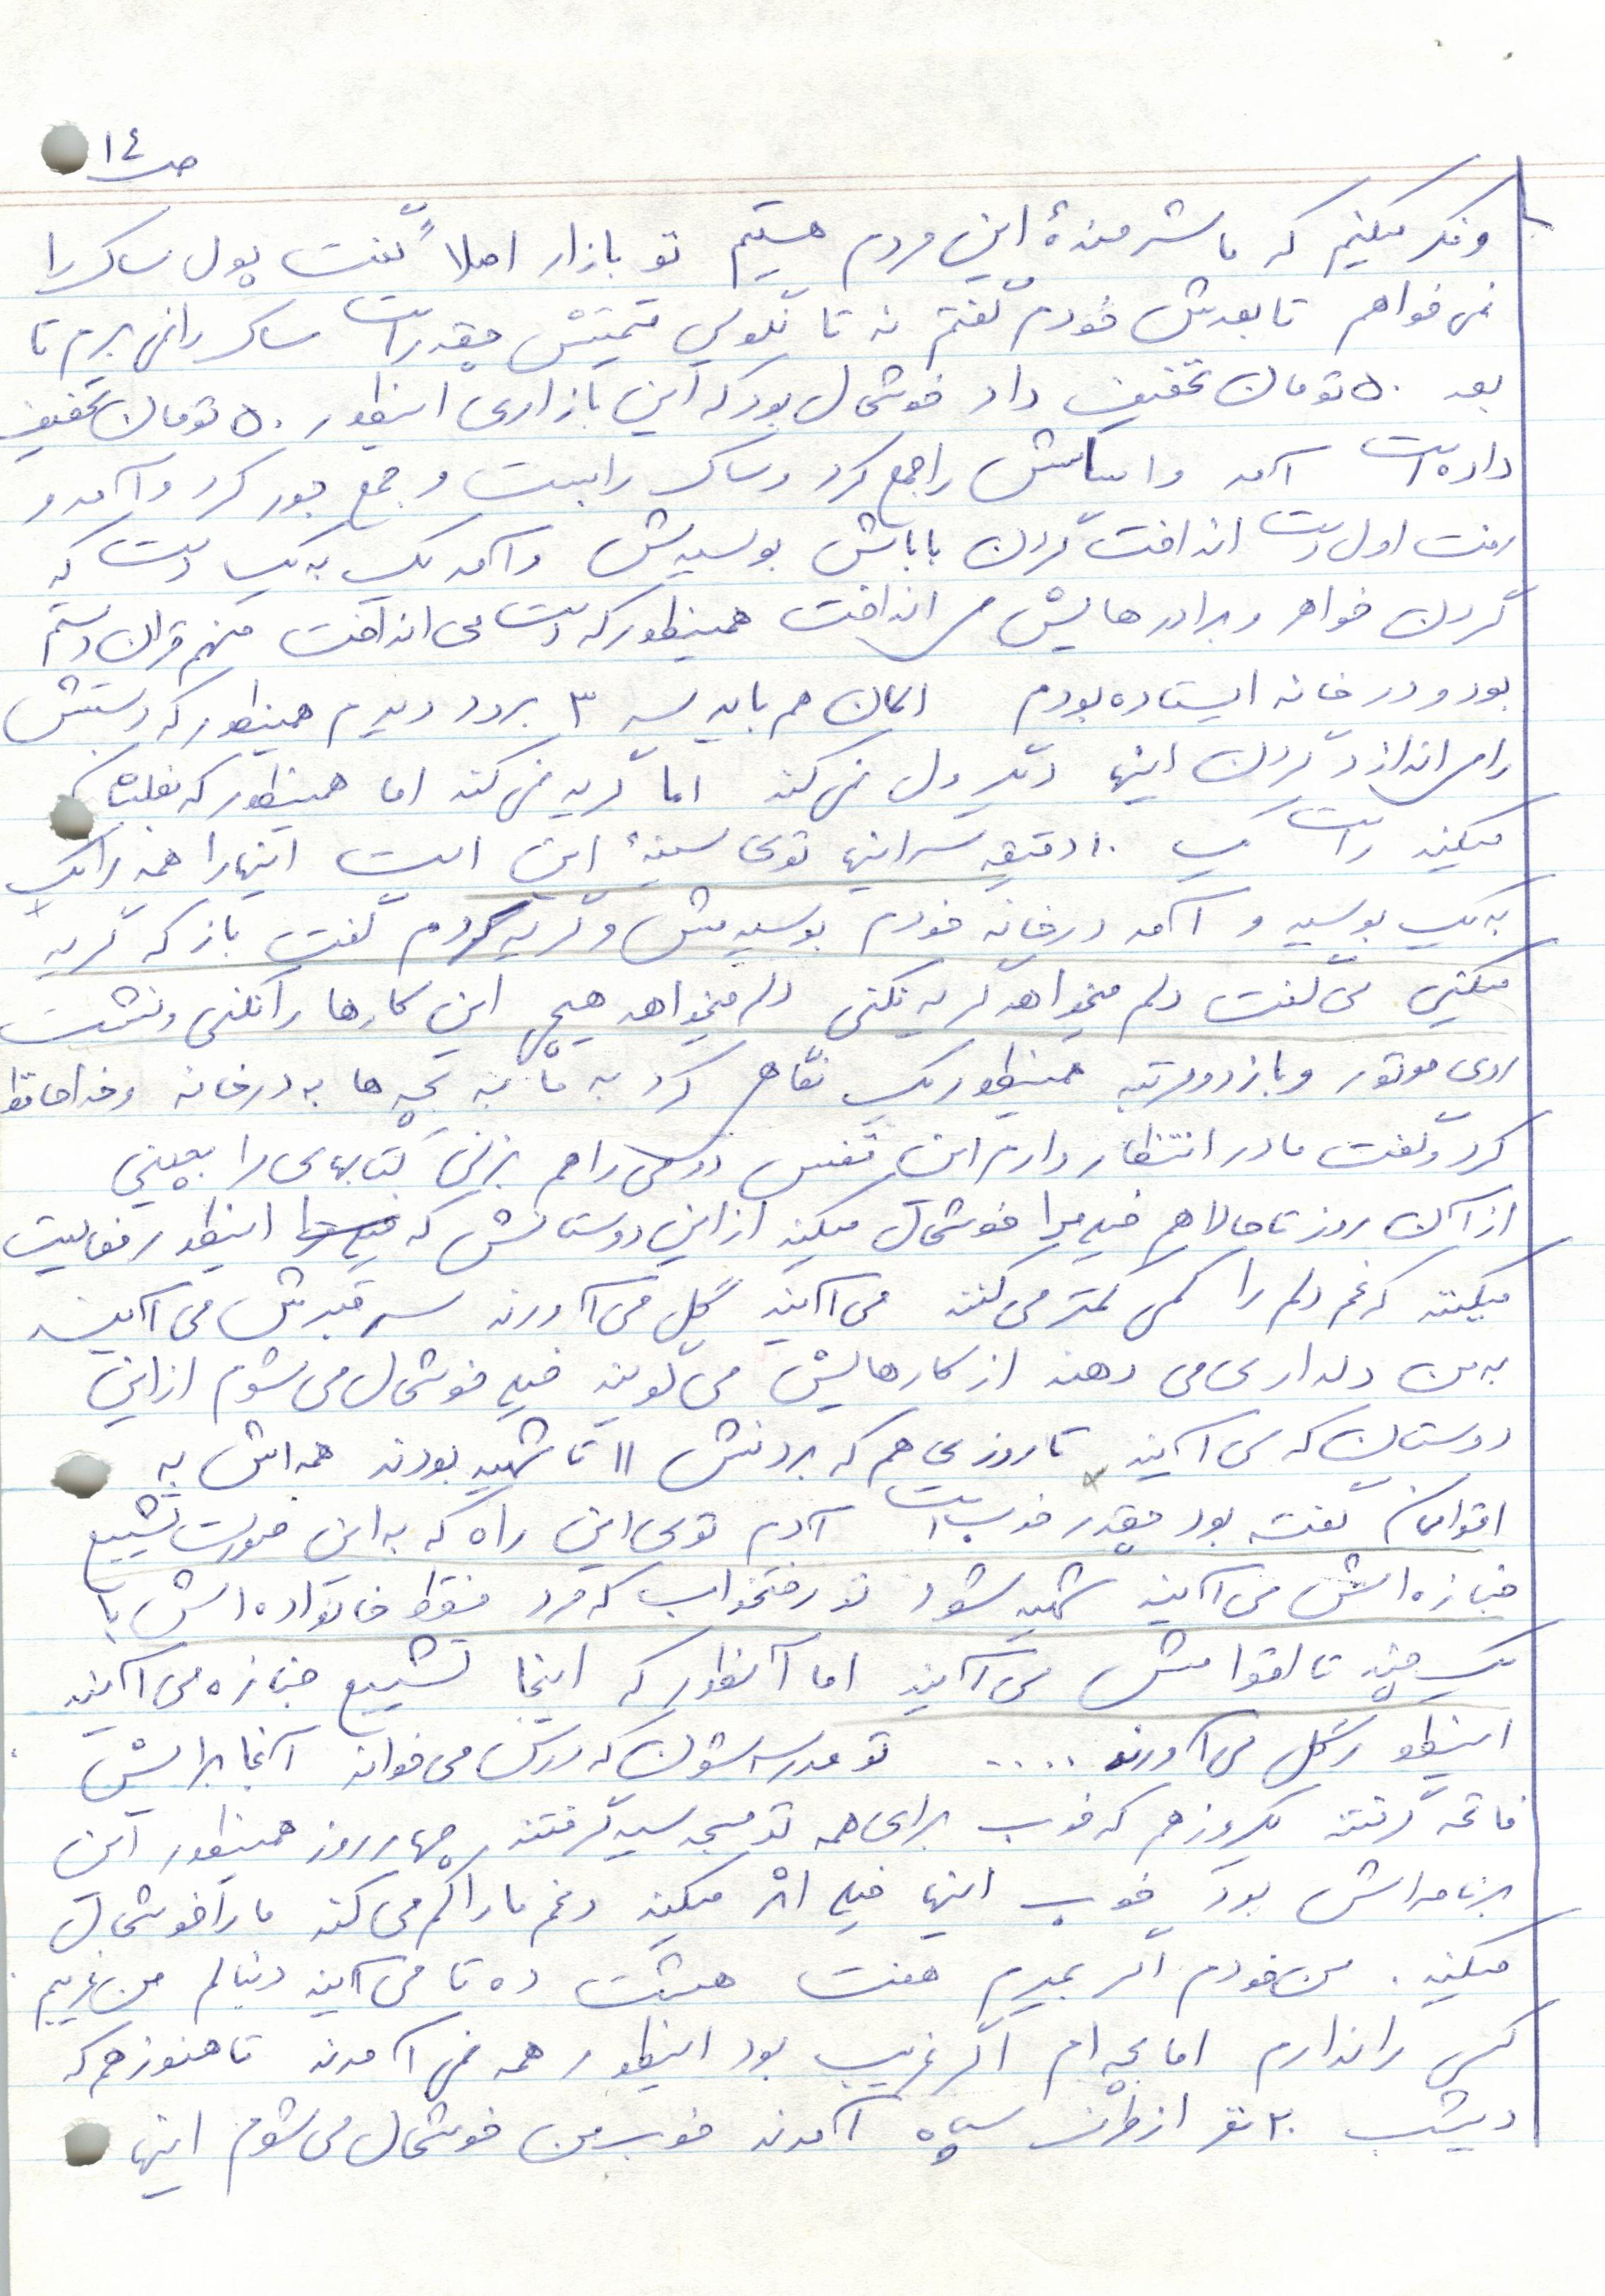 ص ١٤
و فکر میکنیم که ما شرمندهٔ این مردم هستیم تو بازار اصلاً گفت پول ساک را
نمی خواهم تا بعدش خودم گفتم نه تا نگویی قیمتش چقدر است ساک را نمی برم تا
بعد ۵۰ تومان تخفیف داد خوشحال بود که این بازاری اینطور ۵۰ تومان تخفیف
داده است آمد و اسبابش را جمع کرد و ساک را بست و جمع جور کرد و آمد و
رفت اول دست انداخت گردن باباش بوسیدش و آمد یک به یک دست که
گردن خواهر و برادرهایش می انداخت همینطور که دست می انداخت منهم قران دستم
بود و در خانه ایستاده بودم الان هم باید سه ۳ برود دیدم همینطور که دستش
را می اندازد گردن اینها دیگر ول نمی کند اما گریه نمی کند اما همینطور که بغلشان
میکند راست یک ۱۰ دقیقه سر اینها توی سینهٔ این است اینها را همه را یک
به یک بوسید و آمد در خانه خودم بوسیدمش و گریه کردم گفت باز که گریه
میکنی می گفت دلم میخواهد گریه نکنی دلم میخواهد هیچ این کارها را نکنی و نشست
روی موتور و باز دو مرتبه همینطور یک نگاهی کرد به ما به بچه ها به در خانه و خداحافظی
کرد و گفت مادر انتظار دارم این قفس را هم بزنی کتابهای را بچینی
از آن روز تا حالا هم خیلی مرا خوشحال میکند از این دوستانش که اینطور فعالیت
میکنند که غم دلم را کمی کمتر می کنند می آیند گل می آورند سر قبرش می آیند
به من دلداری می دهند از کارهایش می گویند خیلی خوشحال می شوم از این
دوستان که می آیند تا روزی هم که بردنش ۱۱ تا شهید بودند همه اش به
اقوامان گفته بود چقدر خوب است آدم توی این راه که به این صورت تشییع
جنازه اش می آیند شهید شود تو رختخواب که مرد فقط خانواده اش با
یک چند تا اقوامش می آیند اما آنطور که اینجا تشییع جنازه می آیند
اینطور گل می آورند .... تو مدرسه شون که درس می خواند آنجا برایش
فاتحه گرفتند یکروز هم که خوب برای همه تو مسجد سید گرفتند چهار روز همینطور این
برنامه اش بود خوب اینها خیلی اثر میکند و غم ما را کم می کند ما را خوشحال
میکند . من خودم اگر بمیرم هفت هشت ده تا می آیند دنبالم من غریبم
کسی را ندارم اما بچه ام اگر غریب بود اینطور همه نمی آمدند تا هنوز هم که
دیشب ۲۰ نفر از طرف سپاه آمدند خوب من خوشحال می شوم اینها